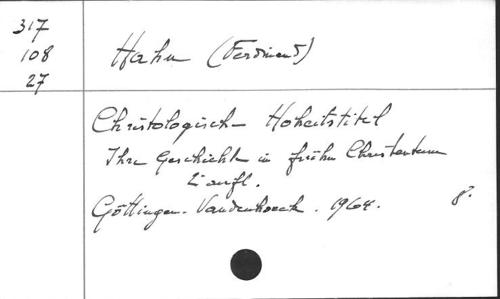 317
108
27
Hahn (Ferdinand)
Christologische Hoheitstitel
Ihre Geschichte im frühen Christentum
2 aufl.
Göttingen. Vandenhoeck. 1964. 8°.